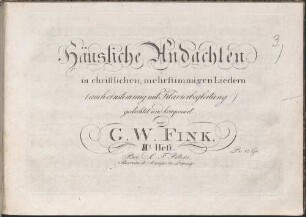 3)
Häusliche Andachten
in christlichen, mehrstimmigen Liedern
(auch einstimmig mit Klavierbegleitung)
gedichtet und komponirt
von
G. W. FINK.
IIs Heft.
Bei C. F. Peters
Bureau de Musique in Leipzig.